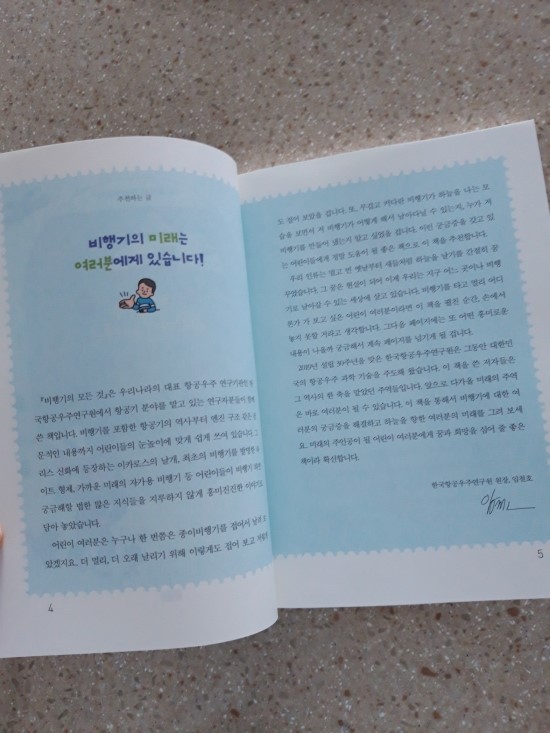 추천하는 글
비행기의 미래는
여러분에게 있습니다!
『비행기의 모든 것』은 우리나라의 대표 항공우주 연구기관인 한
국항공우주연구원에서 항공기 분야를 맡고 있는 연구자분들이 함께
쓴 책입니다. 비행기를 포함한 항공기의 역사부터 엔진 구조 같은 전
문적인 내용까지 어린이들의 눈높이에 맞게 쉽게 쓰여 있습니다. 그
리스 신화에 등장하는 이카로스의 날개, 최초의 비행기를 발명한 라
이트 형제, 가까운 미래의 자가용 비행기 등 어린이들이 비행기 하면
궁금해할 법한 많은 지식들을 지루하지 않게 흥미진진한 이야기로
담아 놓았습니다.
어린이 여러분은 누구나 한 번쯤은 종이비행기를 접어서 날려 보
았겠지요. 더 멀리, 더 오래 날리기 위해 이렇게도 접어 보고 저렇게
4
도 접어 보았을 겁니다. 또, 무겁고 커다란 비행기가 하늘을 나는 모
습을 보면서 저 비행기가 어떻게 해서 날아다닐 수 있는지, 누가 저
비행기를 만들어 냈는지 알고 싶었을 겁니다. 이런 궁금증을 갖고 있
는 어린이들에게 정말 도움이 될 좋은 책으로 이 책을 추천합니다.
우리 인류는 멀고 먼 옛날부터 새들처럼 하늘을 날기를 간절히 꿈
꾸었습니다. 그 꿈은 현실이 되어 이제 우리는 지구 어느 곳이나 비행
기로 날아갈 수 있는 세상에 살고 있습니다. 비행기를 타고 멀리 어디
론가 가 보고 싶은 어린이 여러분이라면 이 책을 펼친 순간, 손에서
놓지 못할 거라고 생각합니다. 그다음 페이지에는 또 어떤 흥미로운
내용이 나올까 궁금해서 계속 페이지를 넘기게 될 겁니다.
2019년 설립 30주년을 맞은 한국항공우주연구원은 그동안 대한민
국의 항공우주 과학 기술을 주도해 왔습니다. 이 책을 쓴 저자들은
그 역사의 한 축을 맡았던 주역들입니다. 앞으로 다가올 미래의 주역
은 바로 여러분이 될 수 있습니다. 이 책을 통해서 비행기에 대한 여
러분의 궁금증을 해결하고 하늘을 향한 여러분의 미래를 그려 보세
요. 미래의 주인공이 될 어린이 여러분에게 꿈과 희망을 실어 줄 좋은
책이라 확신합니다.
한국항공우주연구원 원장, 임철호
5